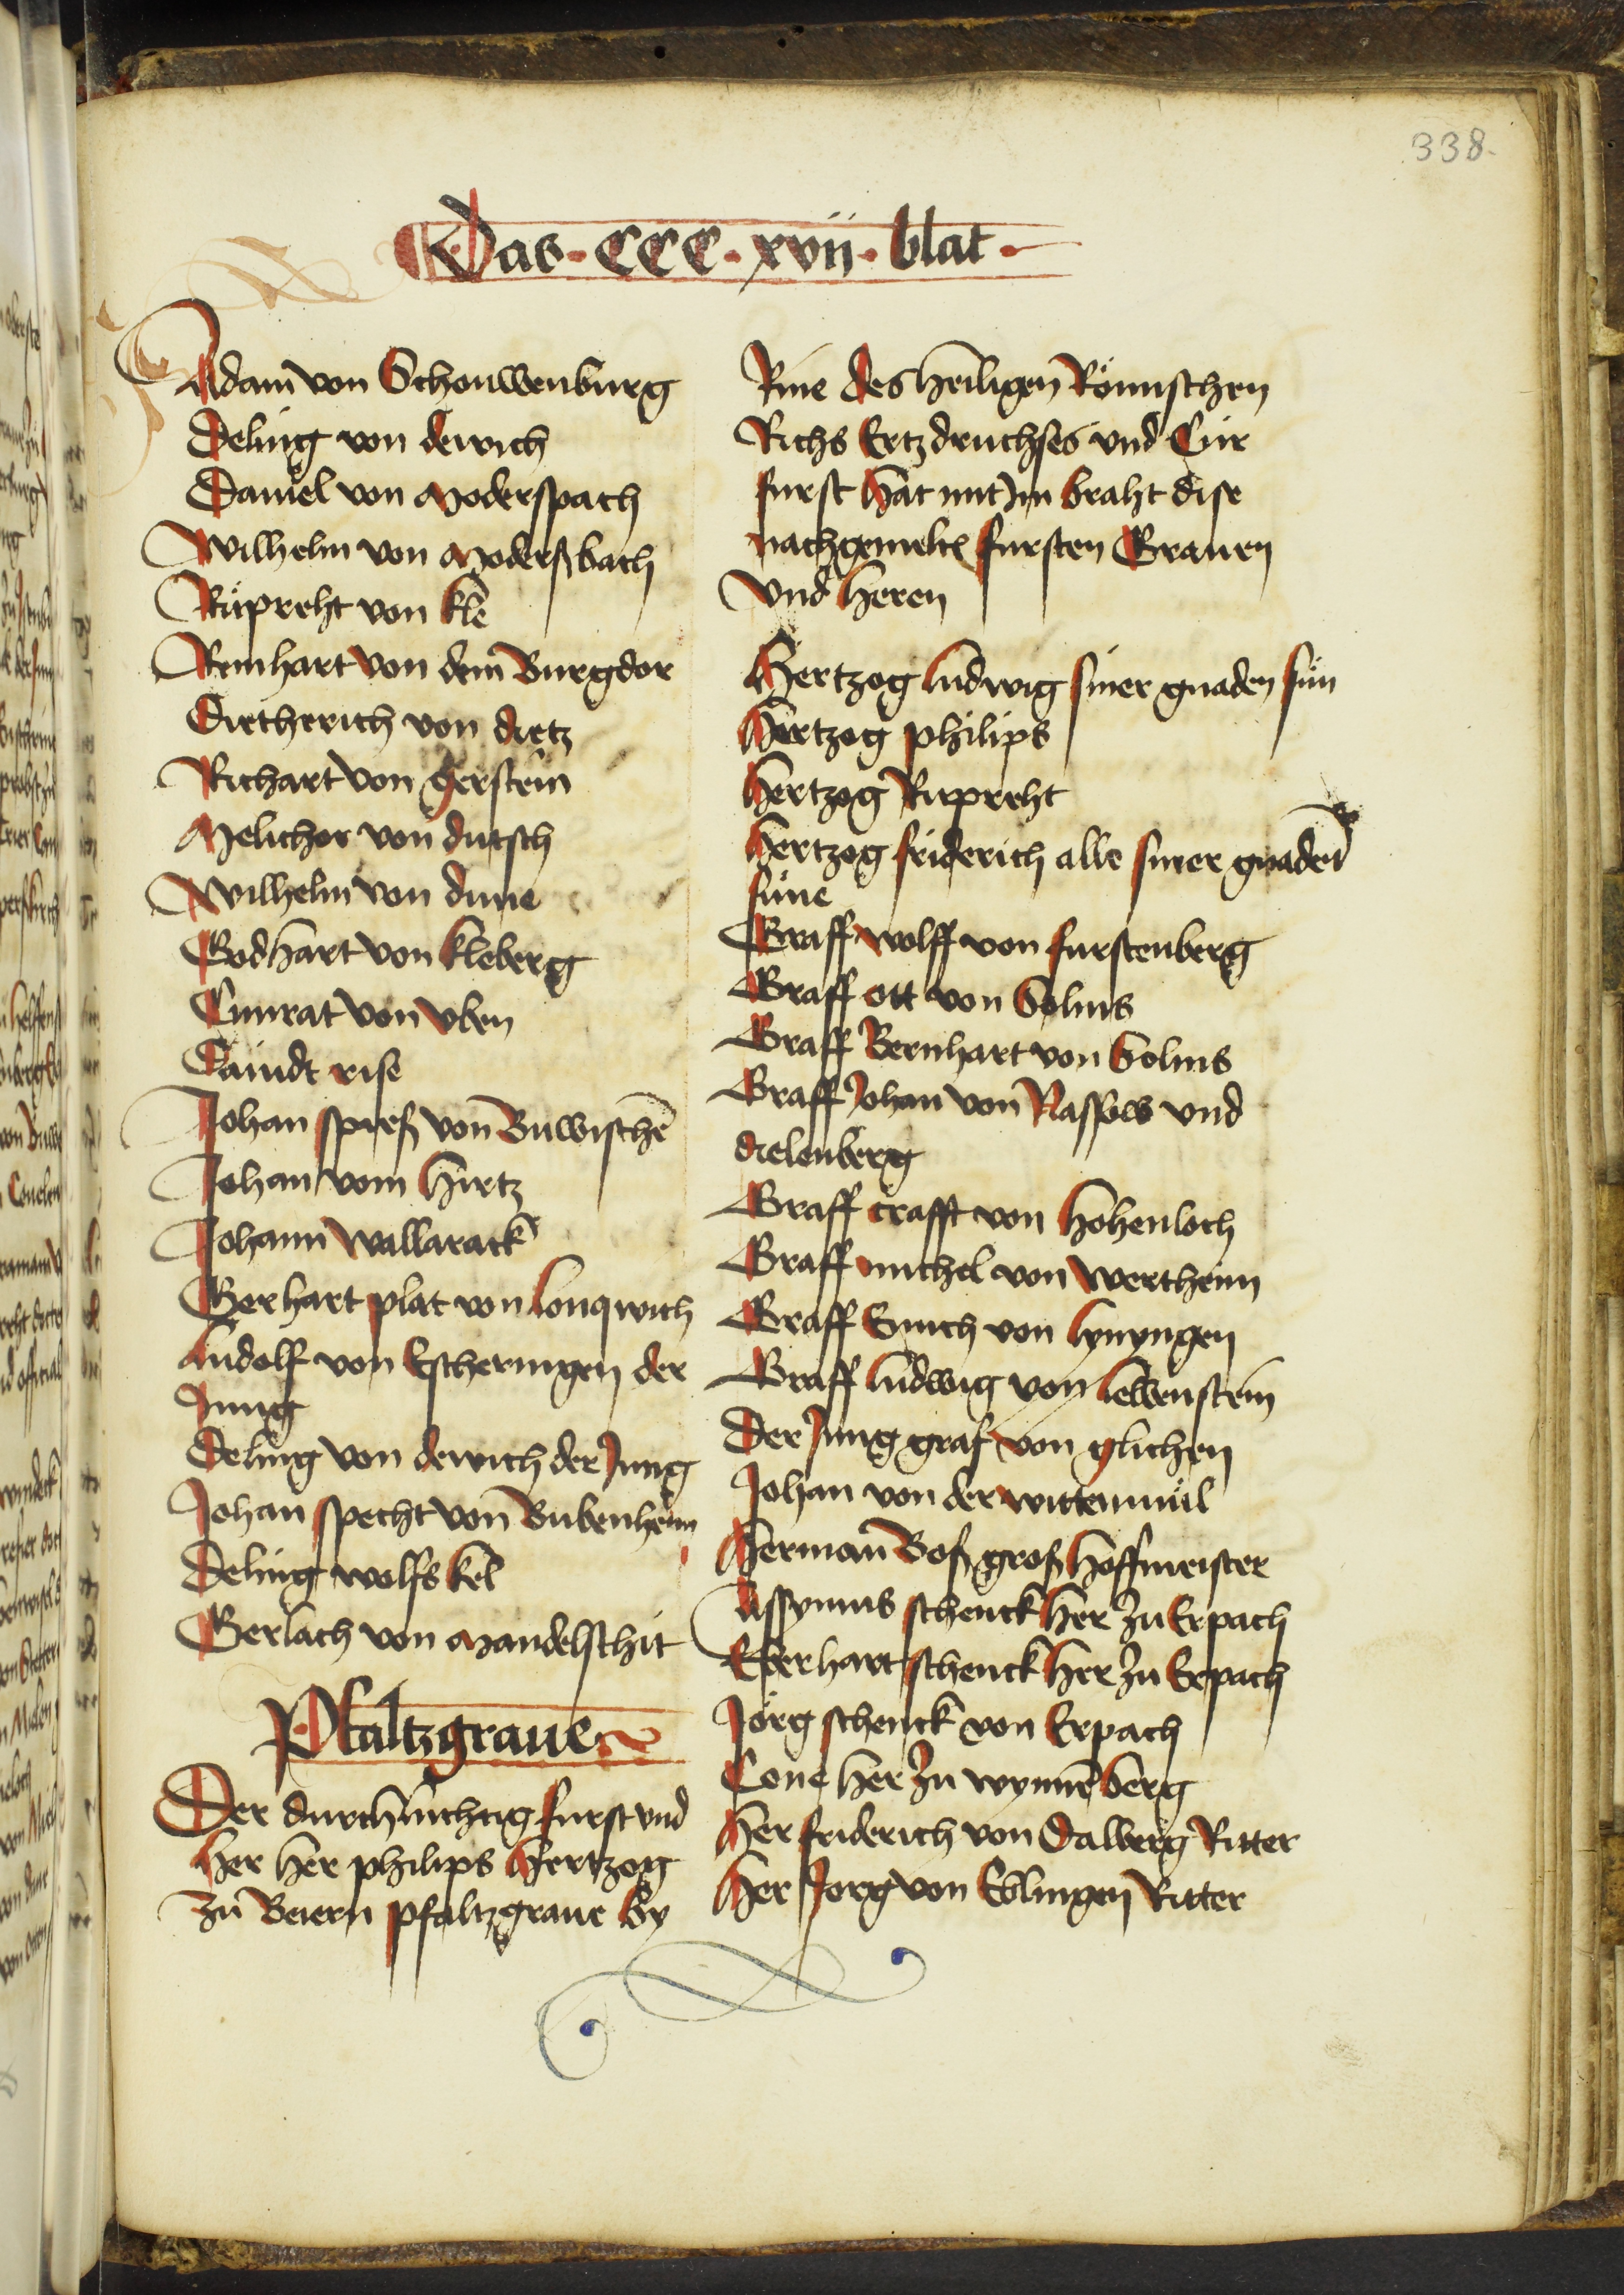 338.
Das · CCC · xvii · blat ·
Adam von Schouwenburg
Deling von dewich
Daniel von Moderspach
Wilhelm von Moderßbach
Rupreht von kle
Reinhart von dem Burgdor
Dietherich von dietz
Richart von gerstein
Melichor von dutsch
Wilhelm von dune
Godhart von kleberg
Cunrat von vlen
Daindt rise
Johan spieß von Buwischē
Johan vom hirtz
Johann wallarack
Gerhart plat von lonqwich
ludolf von Escheringen der
Jung
Deling von dewich der Jung
Johan specht von Bubenheim
Deling wolfs kel
Gerlach von Mandelschit
Pfaltzgraue
Der durchluchtig furst vnd
her her philips Hertzog
zu Beiern pfaltzgraue by
Rine des heiligen Römischen
Richs Ertzdruchses vnd Cur
furst hat mit Jm braht dise
nachgemelten fursten Grauen
vnd heren
Hertzog ludwig siner gnaden sun
Hertzog philips
hertzog Rupreht
hertzog friderich alle siner gnaden
süne
Graff wolff von furstenberg
Graff ott von Solms
Graff Bernhart von Solms
Graff Johan von Nassow vnd
dielenberg
Graff crafft von hohenloch
Graff michel von wertheim
Graff Emich von lynyngen
Graff ludwig von lewenstein
Der Jung graf von glichen
Johan von der wittenmül
Herman Boß groß hoffmeister
Assymus schenck her zu Erpach
Eberhart schenck her zu Erpach
Jörg schenck von Erpach
Cone her zu wynnēberg
Her friderich von Dalberg Ritter
Her Jorg von Eblingen Ritter